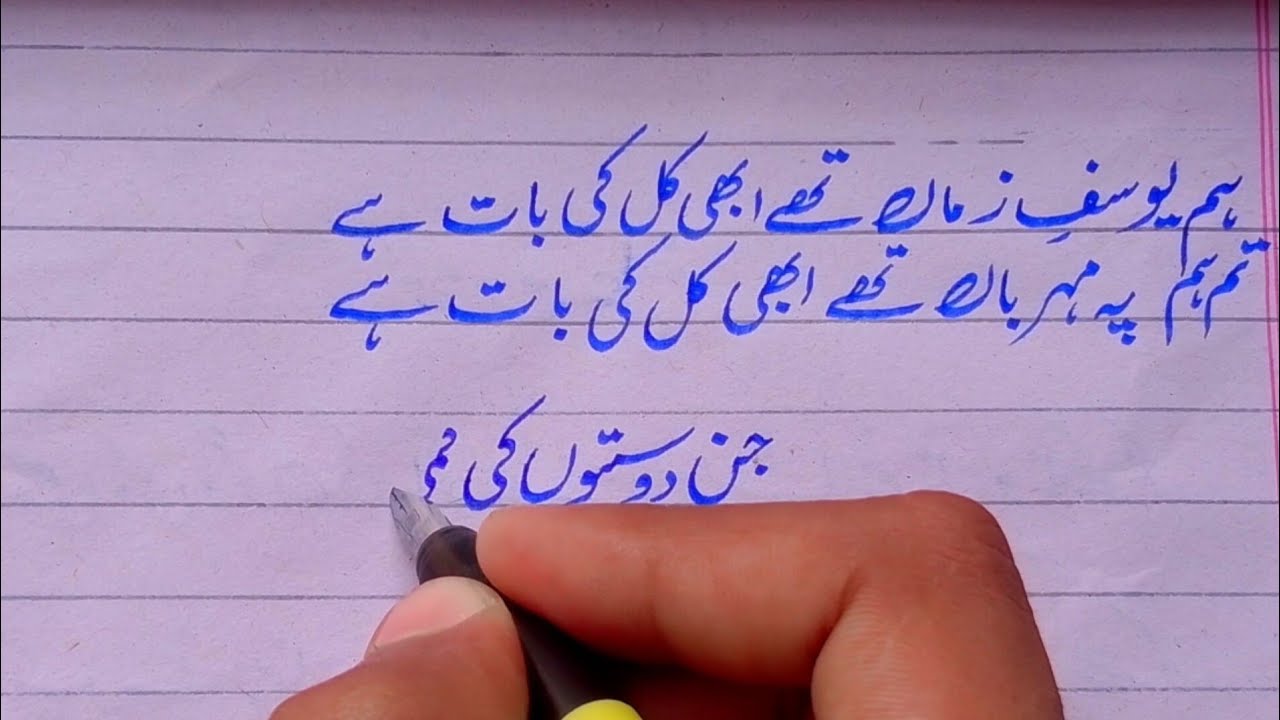 ہم یوسفِ زماں تھے ابھی کل کی بات ہے
تم ہم پہ مہرباں تھے ابھی کل کی بات ہے
جن دوستوں کی